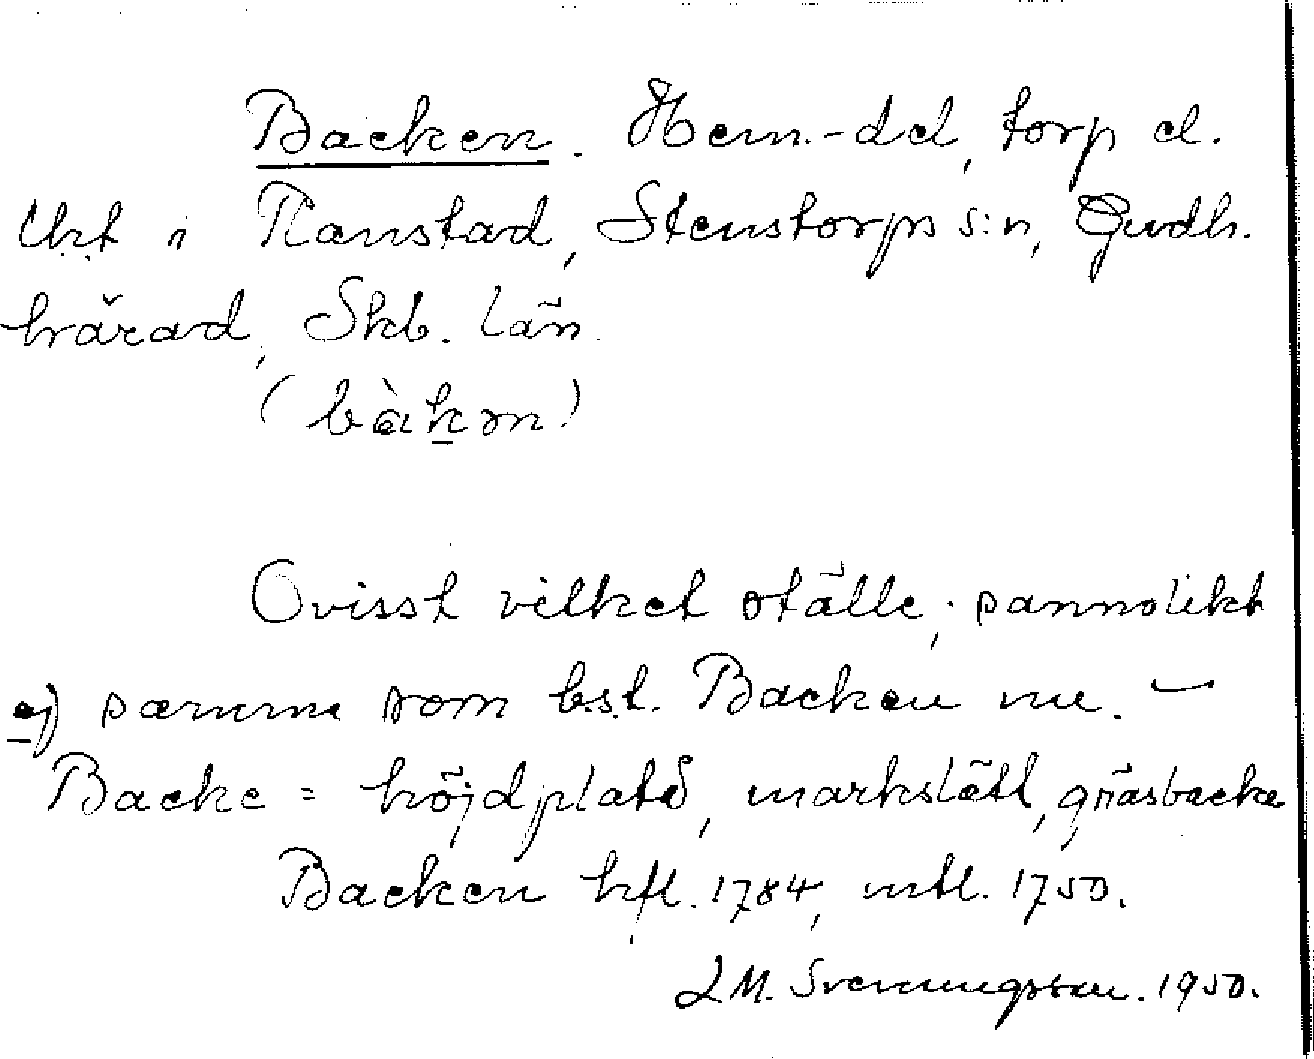 Backen. Hem.-del, torp el.
lht i Ranstad, Stenstorps s:n, Gudh.
härad, Skb. län.
(bàkən)
Ovisst vilket ställe, sannolikt
ej samma som bst. Backen nu. –
Backe = höjdplats, markslätt, gräsbacke
Backen hfl. 1784, mtl. 1750.
L M. Svenungsson. 1950.